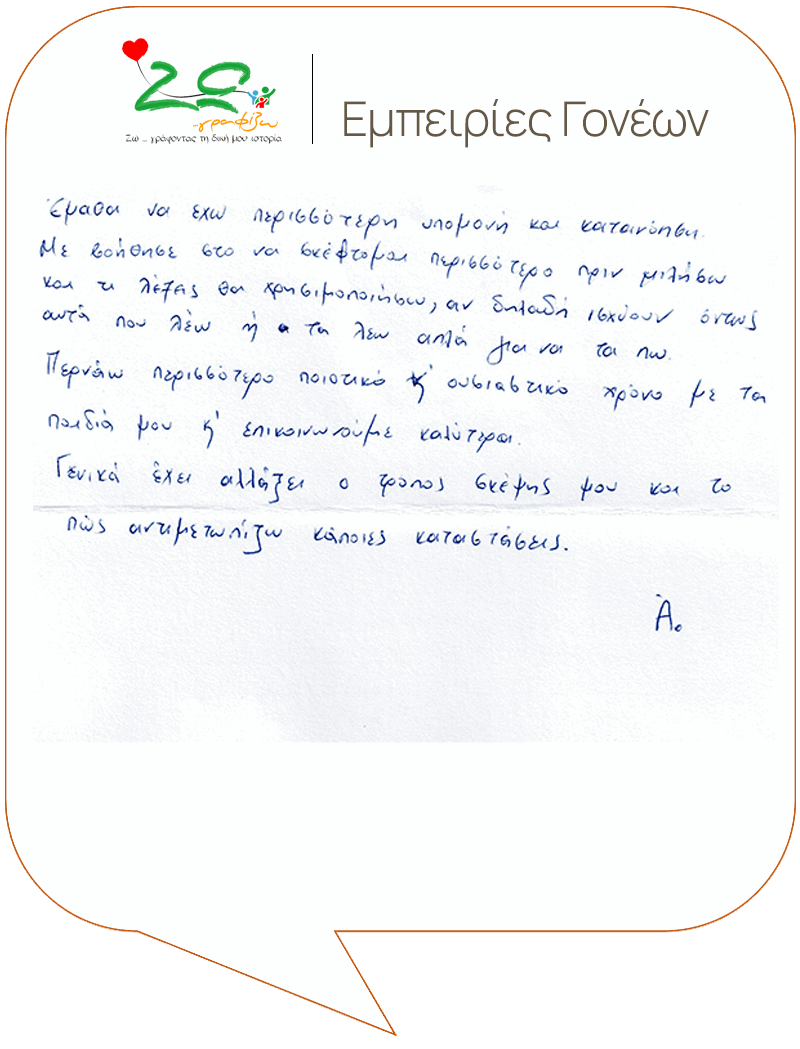 Ζω
...γραφίζω
Ζω ... γράφοντας τη δική μου ιστορία
Εμπειρίες Γονέων
Έμαθα να έχω περισσότερη υπομονή και κατανόηση.
Με βοήθησε στο να σκέφτομαι περισσότερο πριν μιλήσω
και τι λέξεις θα χρησιμοποιήσω, αν δηλαδή ισχύουν όντως
αυτά που λέω ή τα λέω απλά για να τα πω.
Περνάω περισσότερο ποιοτικό κ' ουσιαστικό χρόνο με τα
παιδιά μου κ' επικοινωνούμε καλύτερα.
Γενικά έχει αλλάξει ο τρόπος σκέψης μου και το
πώς αντιμετωπίζω κάποιες καταστάσεις.
Α.